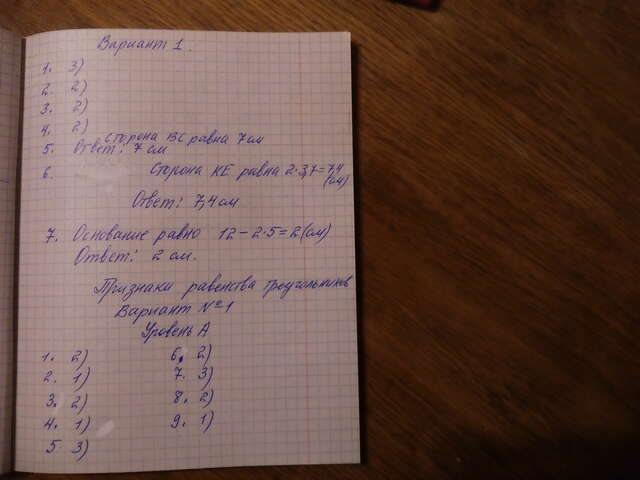 Вариант 1.
1. 3)
2. 2)
3. 2)
4. 2)
сторона BC равна 7 см
5. Ответ: 7 см
6. Сторона KE равна 2·3,7=7,4
(см)
Ответ: 7,4 см
7. Основание равно 12-2·5=2(см)
Ответ: 2 см.
Признаки равенства треугольников
Вариант №1
Уровень А
1. 2)
2. 1)
3. 2)
4. 1)
5. 3)
6. 2)
7. 3)
8. 2)
9. 1)